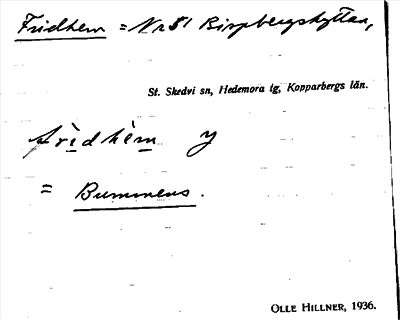 Fridhem = Nr 51 Bispbergshyttan,
St. Skedvi sn, Hedemora tg, Kopparbergs län.
frìdhèm y
= Bummens.
OLLE HILLNER, 1936.